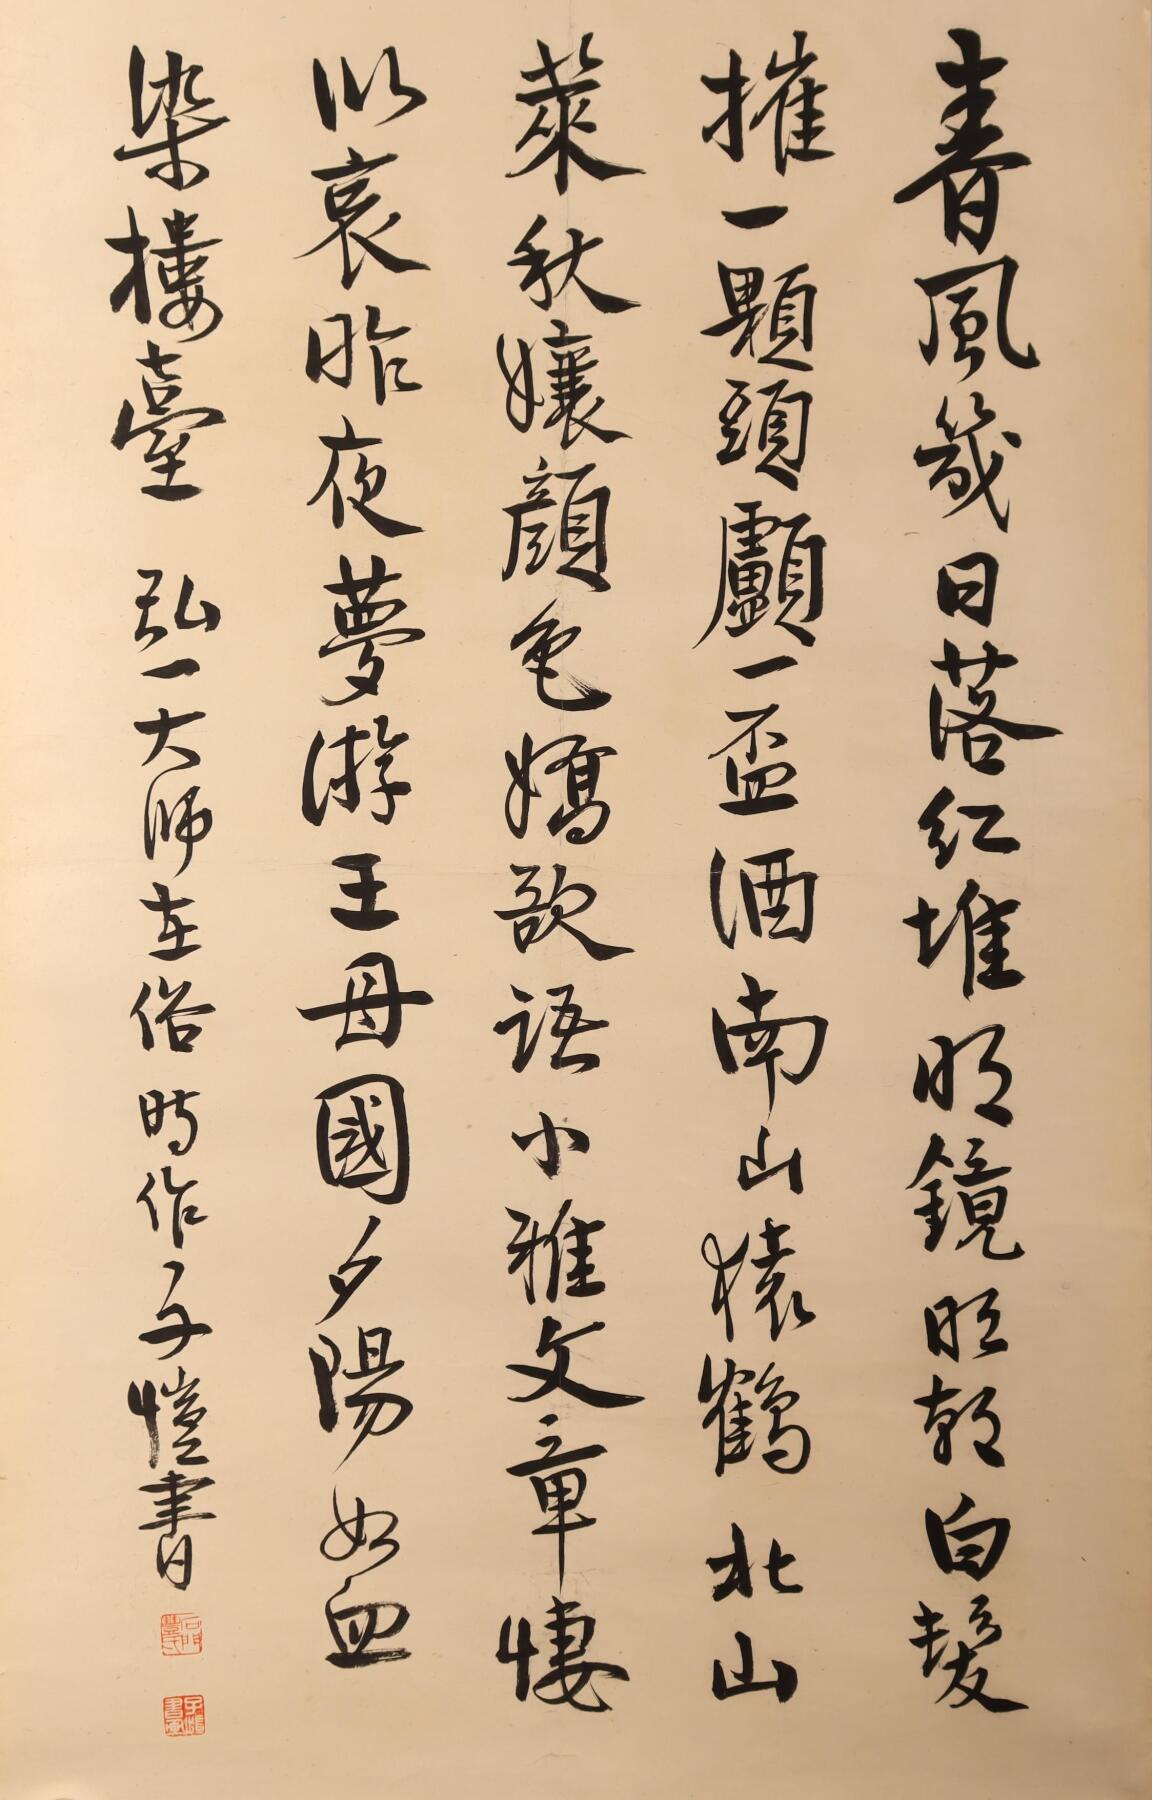 春風幾日落紅堆明鏡明朝白髮
摧一顆頭顱一盃酒南山猿鶴北山
萊秋孃顏色嬌欲語小雅文章悽
以哀昨夜夢游王母國夕陽如血
染樓臺
弘一大師在俗時作子愷書
石門豐氏
子愷書畫